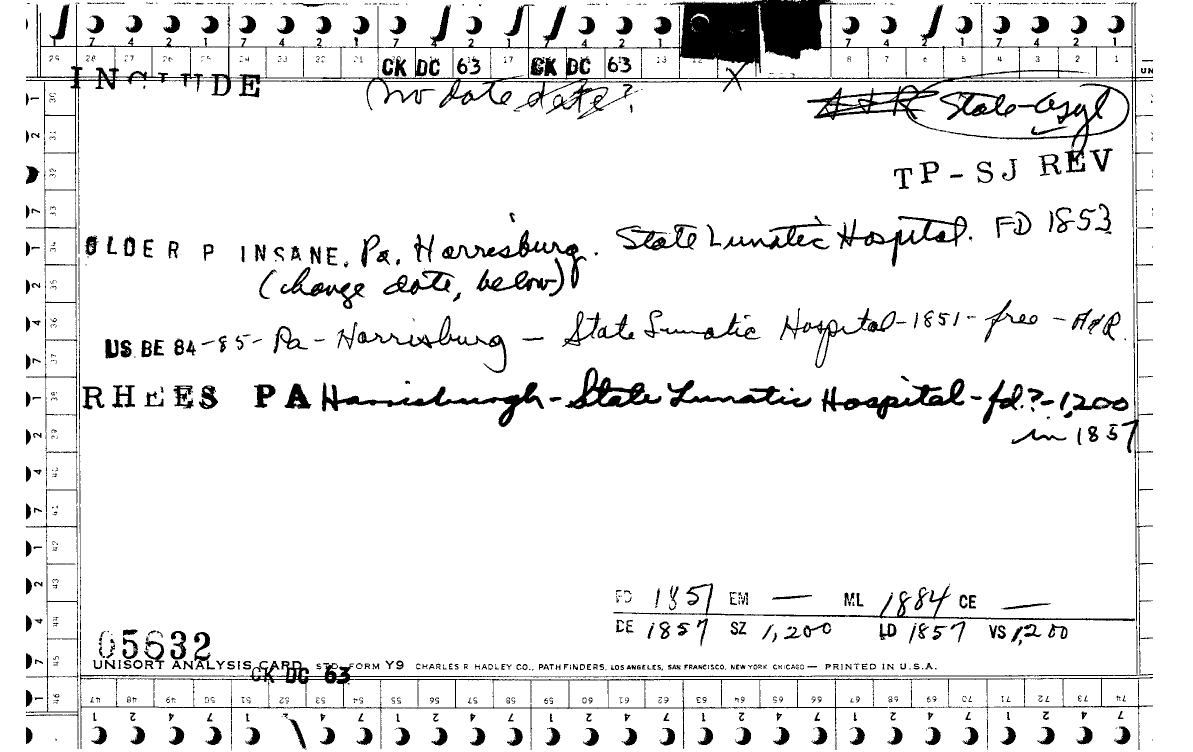 7 4 2 1 7 4 2 1 7 4 2 1 7 4 2 1 8 7 4 2 1
29 28 27 26 25 24 23 22 21 CK DC 63 17 CK DC 63 13 8 7 6 5 4 3 2 1
INCLUDE (no date date? X A&R State-Asyl
TP-SJ REV
OLDER P INSANE. Pa. Harrisburg. State Lunatic Hospital. FD 1853
(change date, below)
US BE 84-85-Pa-Harrisburg - State Lunatic Hospital-1851-free-A&R.
RHEES PA Harrisburgh-State Lunatic Hospital-fd.?-1,200
in 1857
FD 1851 EM — ML 1884 CE —
DE 1857 SZ 1,200 LD 1857 VS 1,200
05632
UNISORT ANALYSIS CARD STD. FORM Y9 CHARLES R HADLEY CO., PATHFINDERS, LOS ANGELES, SAN FRANCISCO, NEW YORK CHICAGO — PRINTED IN U.S.A.
CK DC 63
47 48 49 50 51 52 53 54 55 56 57 58 59 60 61 62 63 64 65 66 67 68 69 70 71 72 73 74
1 2 4 7 1 2 4 7 1 2 4 7 1 2 4 7 1 2 4 7 1 2 4 7 1 2 4 7